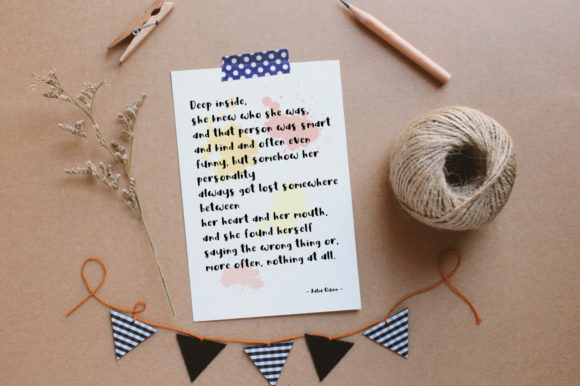 Deep inside,
she knew who she was,
and that person was smart
and kind and often even
funny, but somehow her
personality
always got lost somewhere
between
her heart and her mouth,
and she found herself
saying the wrong thing or,
more often, nothing at all.
~ Julia Quinn ~